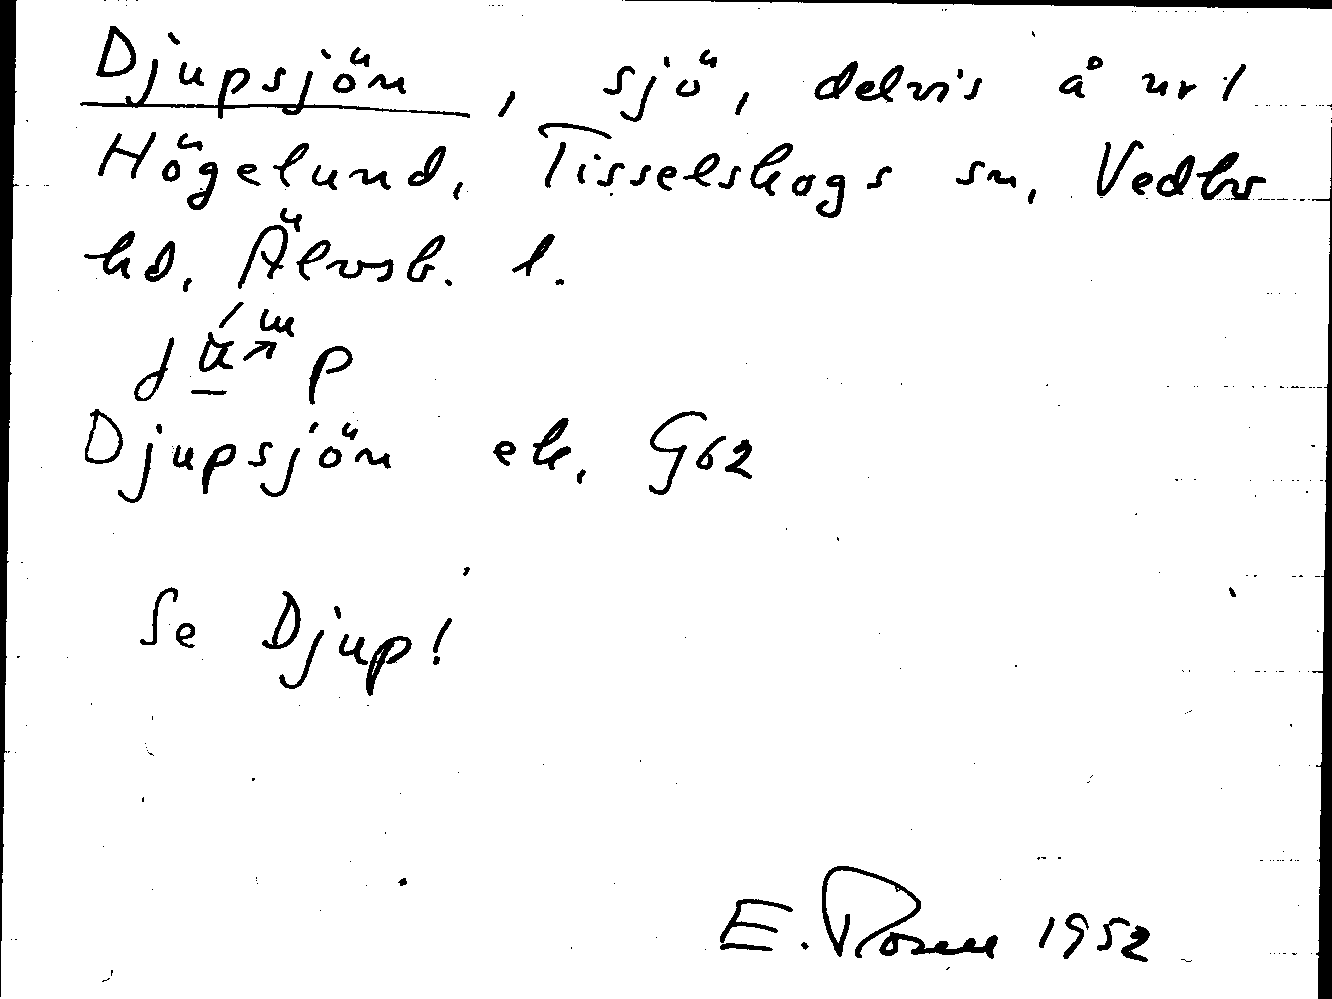 Djupsjön, sjö, delvis å nr 1
Högelund, Tisselskogs sn, Vedbo
hd, Älvsb. l.
Djupsjön ek, G62
Se Djup!
E. Rosell 1952